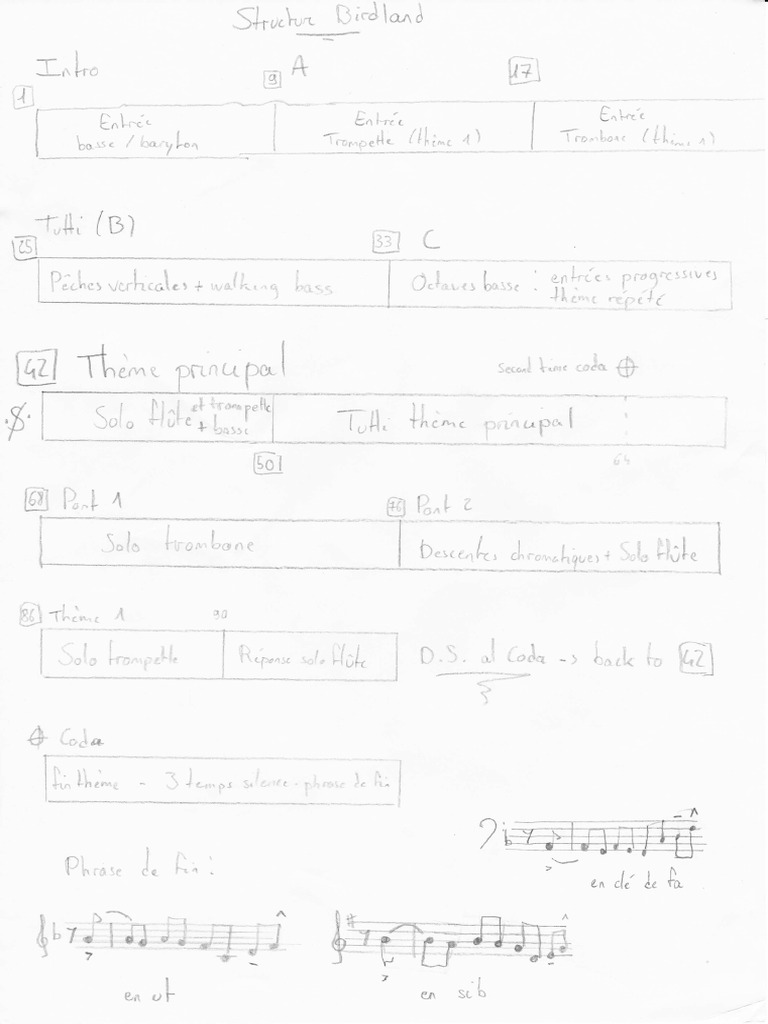 Structur Birdland
Intro
A
17
1
9
Entrée
basse / baryton
Entrée
Trompette (thème 1)
Entrée
Trombone (thème 1)
Tutti (B)
25
33
C
Pêches verticales + walking bass
Octaves basse : entrées progressives
thème répété
42 Thème principal
second time coda
Solo flûte et trompette
+ basse
Tutti thème principal
50
64
68 Pont 1
76 Pont 2
Solo trombone
Descentes chromatiques + Solo flûte
86 Thème 1
90
Solo trompette
Réponse solo flûte
D.S. al Coda -> back to 42
Coda
fin thème - 3 temps silence - phrase de fin
en clé de fa
Phrase de fin :
en ut
en sib